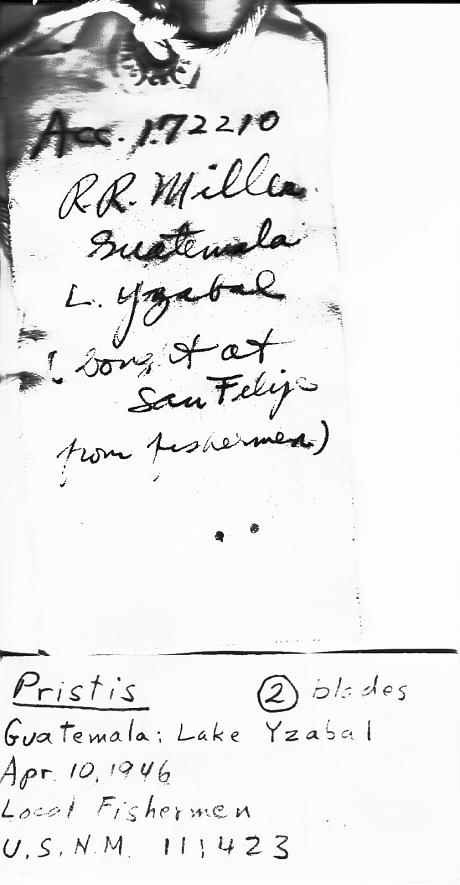 Acc. 172210
R.R. Miller
Guatemala
L. Yzabal
( bought at
San Felipe
from fishermen)
Pristis ② blades
Guatemala: Lake Yzabal
Apr. 10, 1946
Local Fishermen
U.S.N.M. 111423